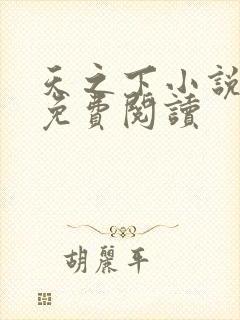 天之下小說
免費閱讀
胡麗平